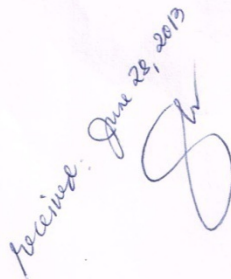 received. June 28, 2013